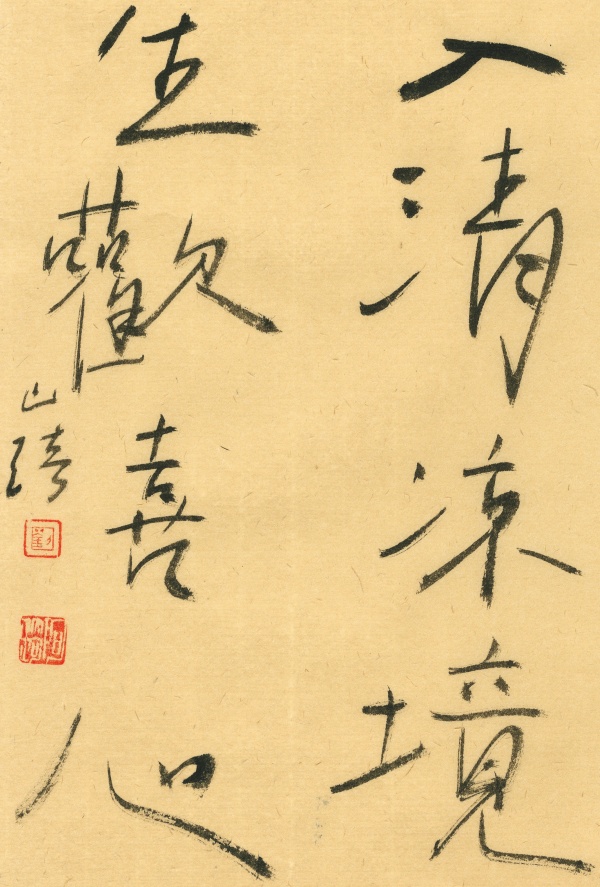 入清凉境
生歡喜心
山
劉